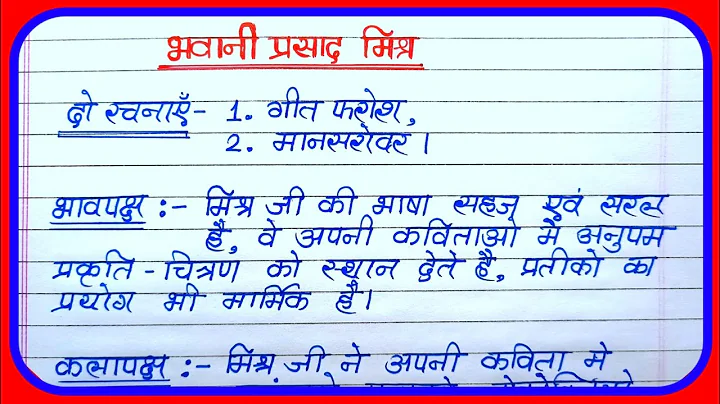 भवानी प्रसाद मिश्र
दो रचनाएँ- 1. गीत फरोश,
2. मानसरोवर।
भावपक्ष :- मिश्र जी की भाषा सहज एवं सरल
है, वे अपनी कविताओ मे अनुपम
प्रकृति-चित्रण को स्थान देते है, प्रतीको का
प्रयोग भी मार्मिक है।
कलापक्ष :- मिश्र जी ने अपनी कविता मे